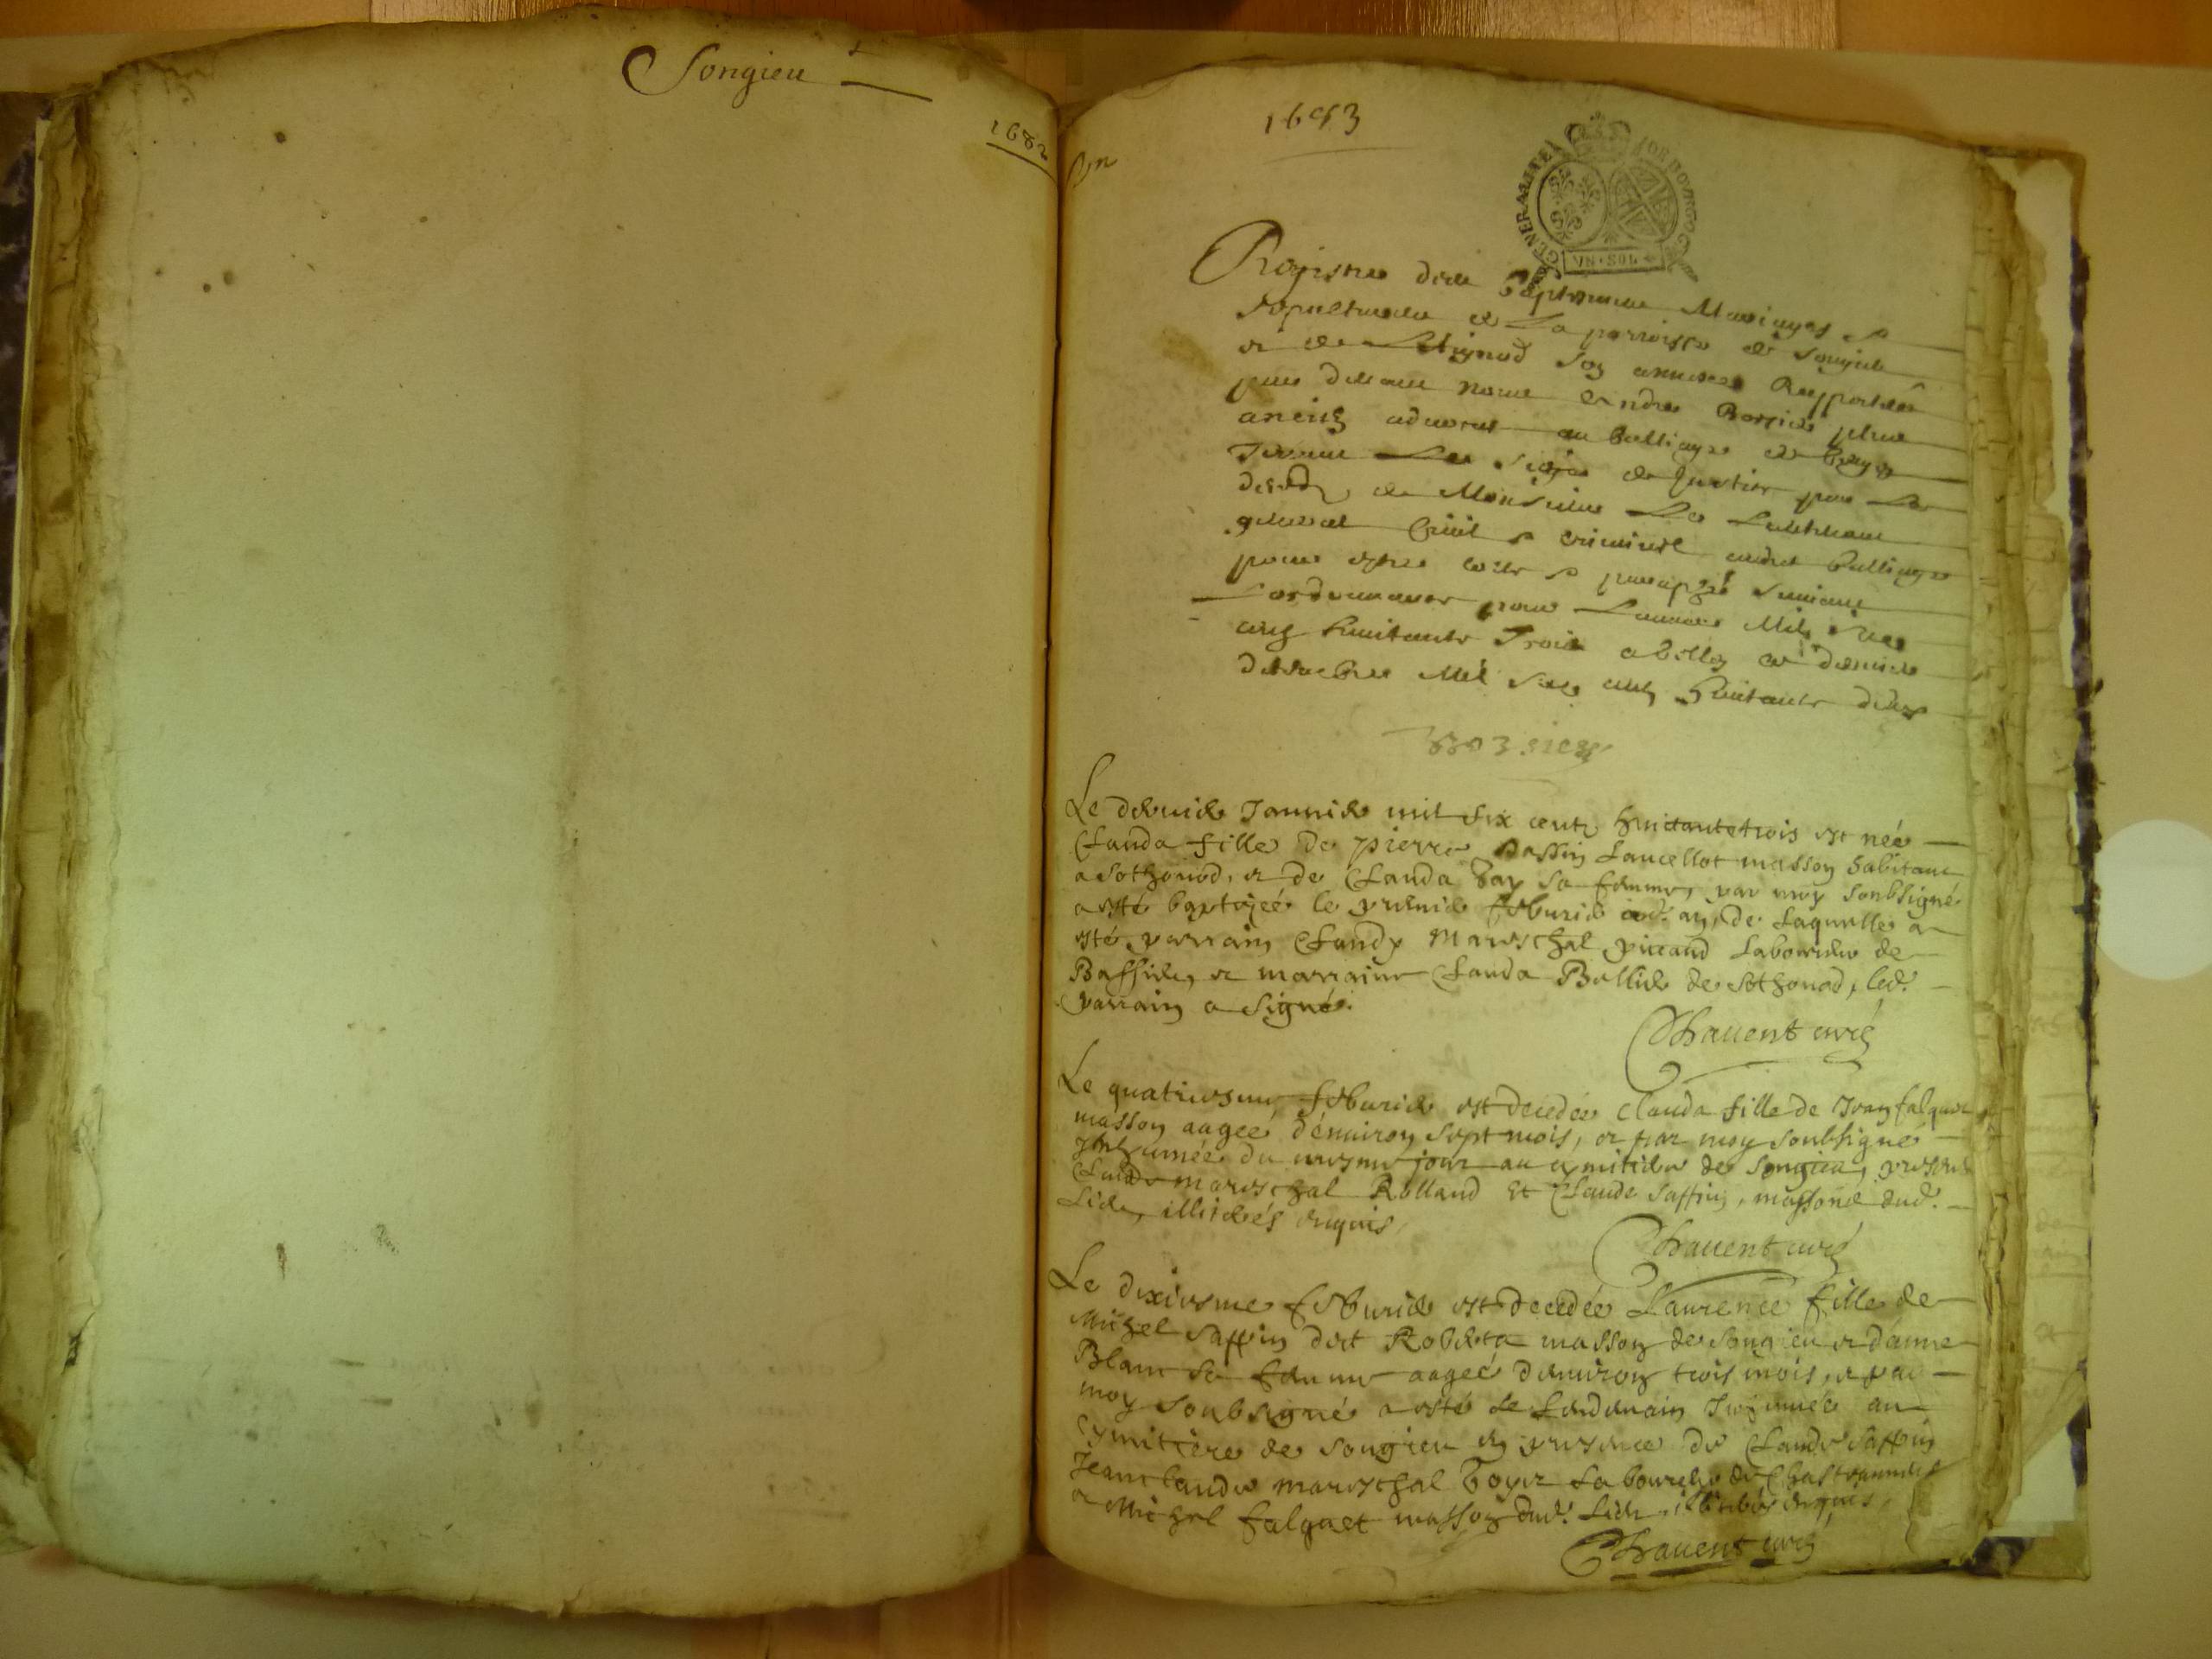 Songieu
1682
1683
GENERALITE DE BOVRGOGNE
VN·SOL
Registre des Baptesmes Mariages et
sepultures de La parroisse de songieu
et de son annexe
par devant nous Andre plus
ancien advocat au balliage de Bugey
Tenant Le siege de Justice pour
de Monsieur Le Lieutenant
general Civil et criminel audit balliage
pour estre cotté et paraphé suivant
L'ordonnance pour Lannée Mil six
cens huitante Trois a belley ce dernier
decembre Mil six cens huitante deux
Le dernier Janvier mil six cents huictante trois est née
Clauda fille de pierre Lancellot masson habitant
a sothonod, et de Clauda sa femme, par moy soubsigné
a esté baptizée le premier febvrier aud. an, de laquelle a
esté parrain Claude Mareschal laboureur de
Bassieu, et marraine Clauda de sothonod, led.
parrain a signé.
Chavent curé
Le quatriesme febvrier est decedée Clauda fille de Jean falquet
masson aagee d'environ sept mois, et par moy soubsigné
Inhumée du mesme jour au cymitiere de songieu, presents
Claude mareschal Rolland et Claude saffin, massons dud.
Lieu, illiterés enquis,
Chavent curé
Le dixiesme febvrier est decedée Laurence fille de
Michel saffin dict Roberta masson de songieu et d'anne
Blanc sa femme aagée d'environ trois mois, et par
moy soubsigné a esté le lendemain Inhumée au
cymitiere de songieu en presence de Claude saffin
Jeanclaude mareschal laboureur de
et Michel falquet masson dud. Lieu illiterés enquis,
Chavent curé